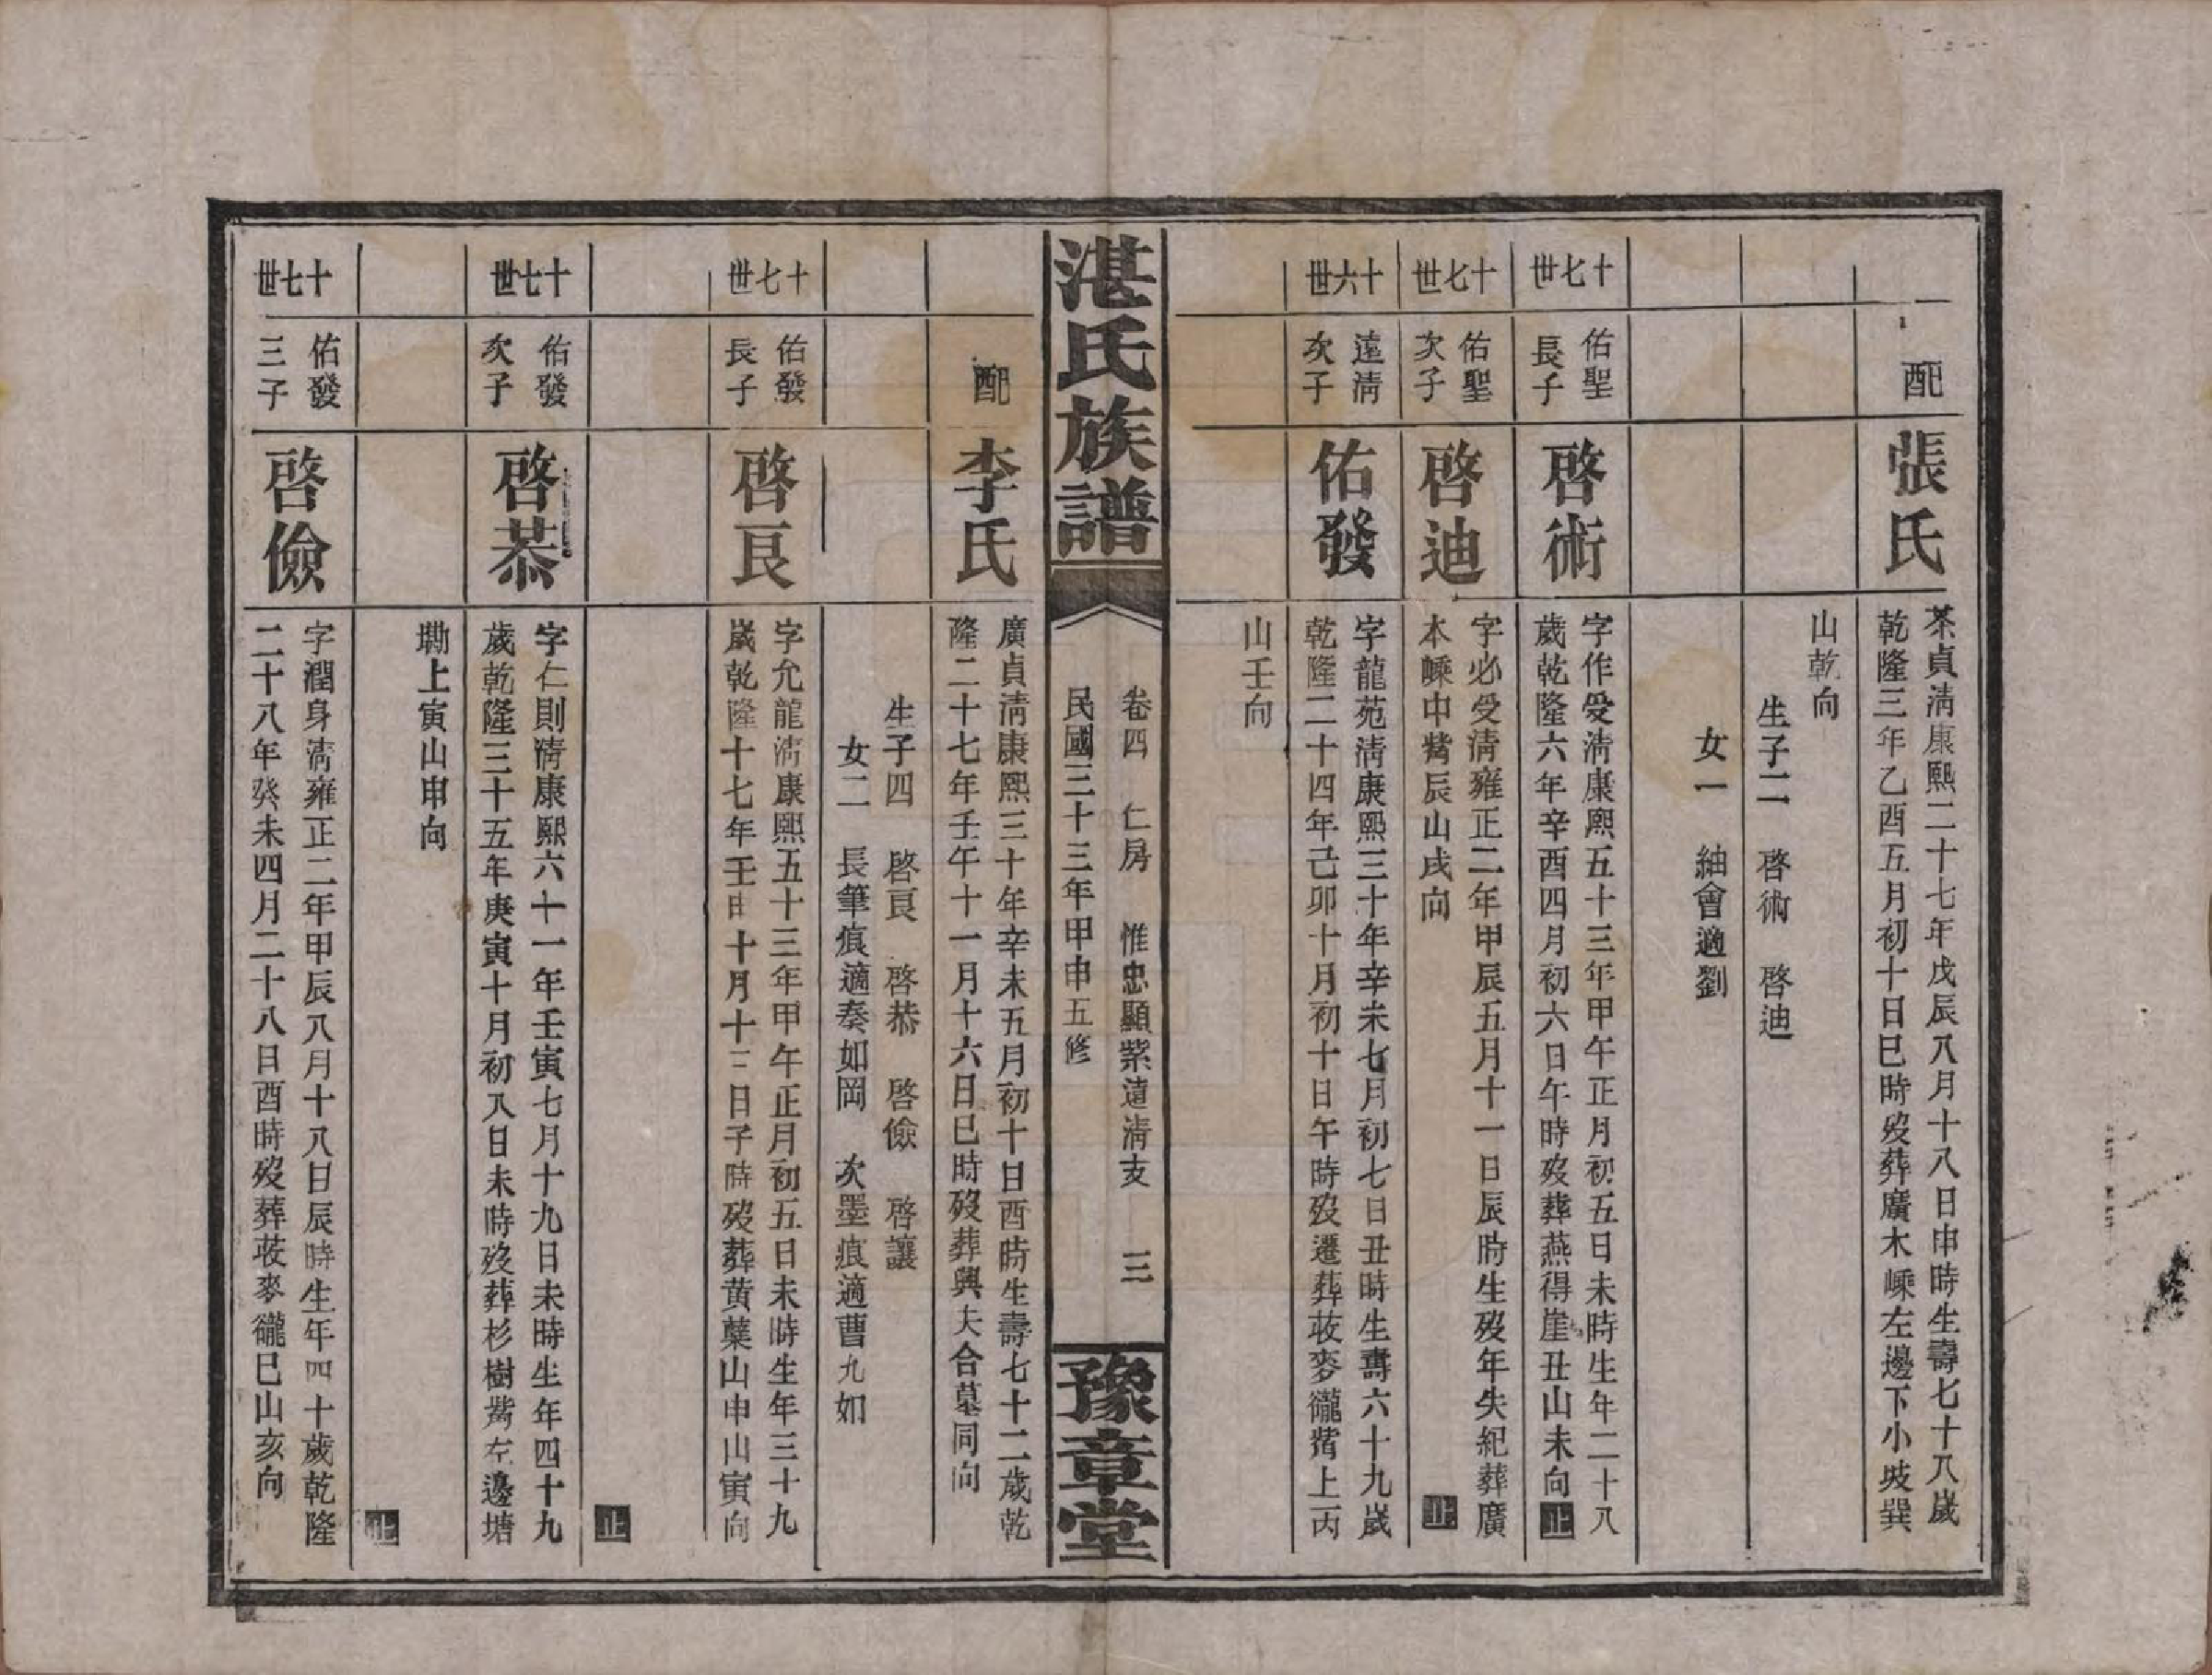 配
張氏
茶貞淸康熙二十七年戊辰八月十八日申時生壽七十八歲
乾隆三年乙酉五月初十日巳時歿葬廣木嵊左邊下小坡巽
山乾向
生子二　啓術　啓迪
女一　紬會適劉
十七世
佑聖
長子
啓術
字作受淸康熙五十三年甲午正月初五日未時生年二十八
歲乾隆六年辛酉四月初六日午時歿葬燕得崖丑山未向 止
十七世
佑聖
次子
啓迪
字必受淸雍正二年甲辰五月十一日辰時生歿年失紀葬廣
木嵊中觜辰山戌向 止
十六世
遠淸
次子
佑發
字龍苑淸康熙三十年辛未七月初七日丑時生壽六十九歲
乾隆二十四年己卯十月初十日午時歿遷葬荍麥衪觜上丙
山壬向
湛氏族譜
卷四　仁房　惟忠顯紫遠淸支　三
民國三十三年甲申五修
豫章堂
配
李氏
廣貞淸康熙三十年辛未五月初十日酉時生壽七十二歲乾
隆二十七年壬午十一月十六日巳時歿葬與夫合墓同向
生子四　啓良　啓恭　啓儉　啓讓
女二　長筆痕適秦如岡　次墨痕適曹九如
十七世
佑發
長子
啓良
字允龍淸康熙五十三年甲午正月初五日未時生年三十九
歲乾隆十七年壬申十月十二日子時歿葬黄蘗山申山寅向
止
十七世
佑發
次子
啓恭
字仁則淸康熙六十一年壬寅七月十九日未時生年四十九
歲乾隆三十五年庚寅十月初八日未時歿葬杉樹觜左邊塘
墈上寅山申向
止
十七世
佑發
三子
啓儉
字潤身淸雍正二年甲辰八月十八日辰時生年四十歲乾隆
二十八年癸未四月二十八日酉時歿葬荍麥巳山亥向